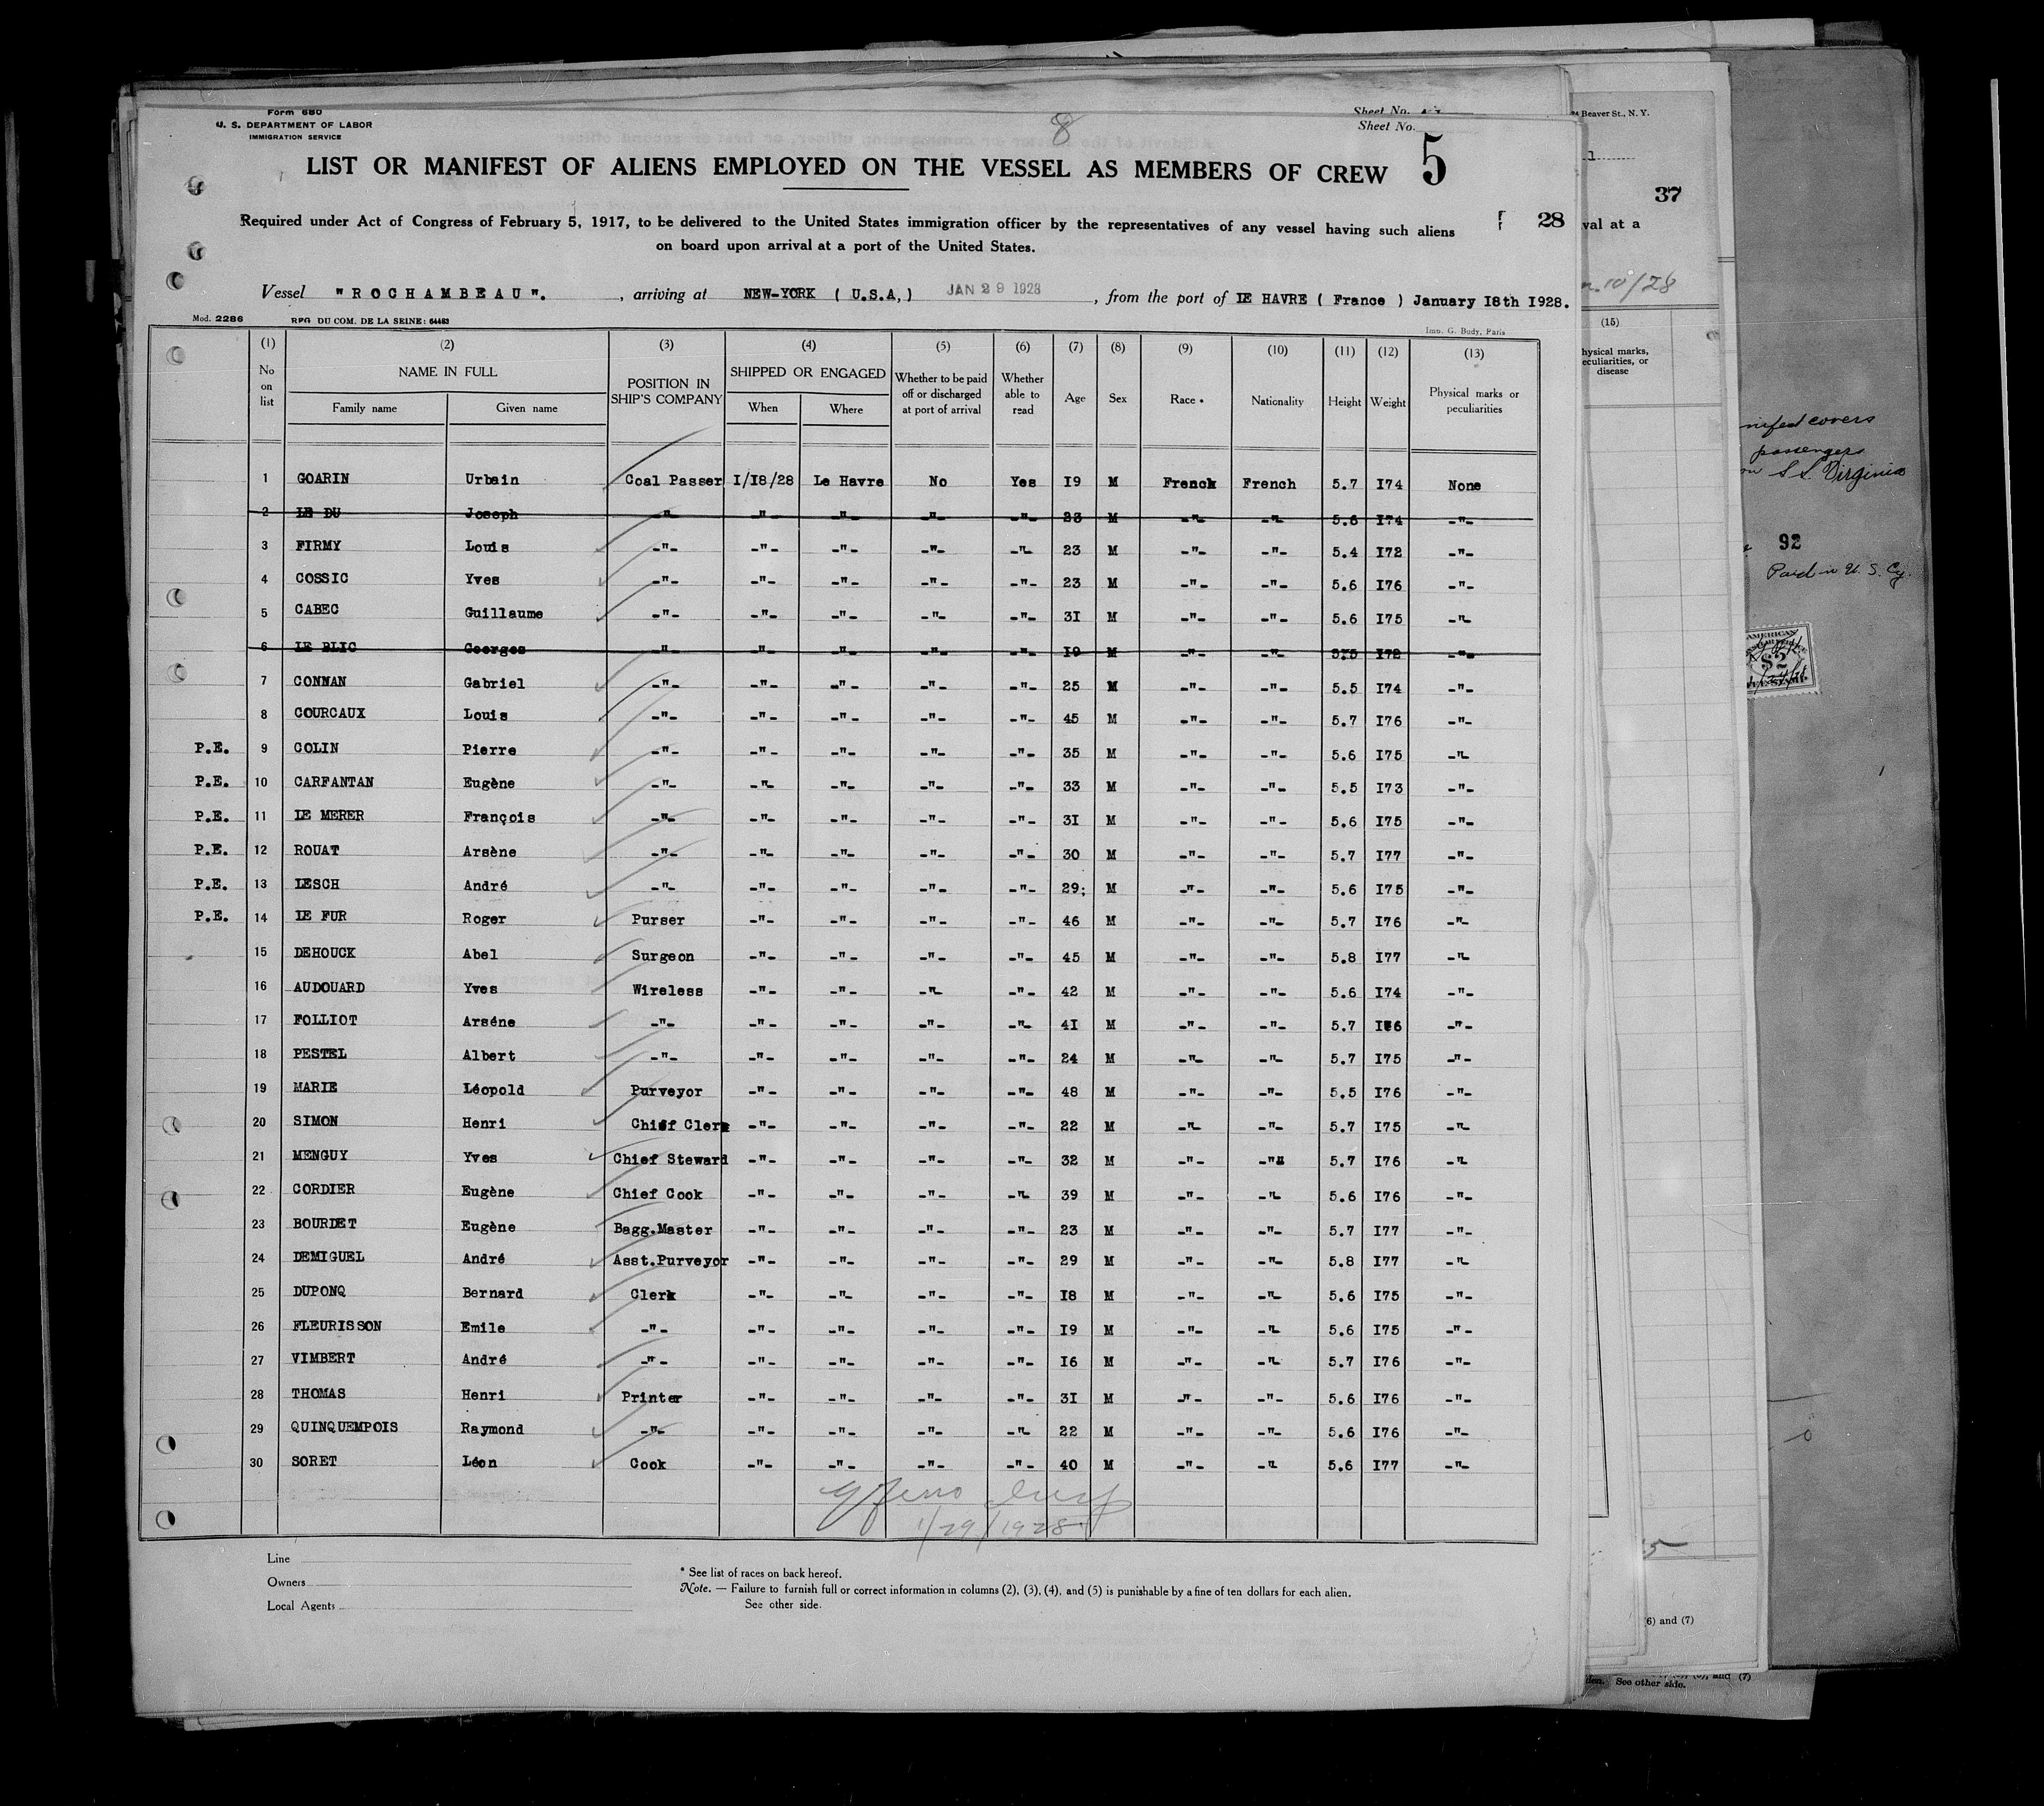 Form 680
U. S. DEPARTMENT OF LABOR
IMMIGRATION SERVICE
8
Sheet No.
Sheet No.
5
LIST OR MANIFEST OF ALIENS EMPLOYED ON THE VESSEL AS MEMBERS OF CREW
Required under Act of Congress of February 5, 1917, to be delivered to the United States immigration officer by the representatives of any vessel having such aliens
on board upon arrival at a port of the United States.
28
Vessel "ROCHAMBEAU". , arriving at NEW-YORK ( U.S.A,) JAN 29 1928 , from the port of LE HAVRE ( France ) January I8th I928.
Mod. 2286 RPG DU COM. DE LA SEINE: 64483
Imp. G. Budy, Paris
(1) (2) (3) (4) (5) (6) (7) (8) (9) (10) (11) (12) (13)
No on list NAME IN FULL Family name Given name POSITION IN SHIP'S COMPANY SHIPPED OR ENGAGED When Where Whether to be paid off or discharged at port of arrival Whether able to read Age Sex Race * Nationality Height Weight Physical marks or peculiarities
1 GOARIN Urbain Coal Passer I/I8/28 Le Havre No Yes I9 M French French 5.7 I74 None
2 LE DU Joseph -"- -"- -"- -"- -"- 23 M -"- -"- 5.6 I74 -"-
3 FIRMY Louis -"- -"- -"- -"- -"- 23 M -"- -"- 5.4 I72 -"-
4 COSSIC Yves -"- -"- -"- -"- -"- 23 M -"- -"- 5.6 I76 -"-
5 CABEC Guillaume -"- -"- -"- -"- -"- 3I M -"- -"- 5.6 I75 -"-
6 LE BLIC Georges -"- -"- -"- -"- -"- I9 M -"- -"- 5.5 I72 -"-
7 CONNAN Gabriel -"- -"- -"- -"- -"- 25 M -"- -"- 5.5 I74 -"-
8 COURCAUX Louis -"- -"- -"- -"- -"- 45 M -"- -"- 5.7 I76 -"-
P.E. 9 COLIN Pierre -"- -"- -"- -"- -"- 35 M -"- -"- 5.6 I75 -"-
P.E. 10 CARFANTAN Eugène -"- -"- -"- -"- -"- 33 M -"- -"- 5.5 I73 -"-
P.E. 11 LE MERER François -"- -"- -"- -"- -"- 3I M -"- -"- 5.6 I75 -"-
P.E. 12 ROUAT Arsène -"- -"- -"- -"- -"- 30 M -"- -"- 5.7 I77 -"-
P.E. 13 LESCH André -"- -"- -"- -"- -"- 29; M -"- -"- 5.6 I75 -"-
P.E. 14 LE FUR Roger Purser -"- -"- -"- -"- 46 M -"- -"- 5.7 I76 -"-
15 DEHOUCK Abel Surgeon -"- -"- -"- -"- 45 M -"- -"- 5.8 I77 -"-
16 AUDOUARD Yves Wireless -"- -"- -"- -"- 42 M -"- -"- 5.6 I74 -"-
17 FOLLIOT Arséne -"- -"- -"- -"- -"- 4I M -"- -"- 5.7 I76 -"-
18 PESTEL Albert -"- -"- -"- -"- -"- 24 M -"- -"- 5.7 I75 -"-
19 MARIE Léopold Purveyor -"- -"- -"- -"- 48 M -"- -"- 5.5 I76 -"-
20 SIMON Henri Chief Clerk -"- -"- -"- -"- 22 M -"- -"- 5.7 I75 -"-
21 MENGUY Yves Chief Steward -"- -"- -"- -"- 32 M -"- -"- 5.7 I76 -"-
22 CORDIER Eugène Chief Cook -"- -"- -"- -"- 39 M -"- -"- 5.6 I76 -"-
23 BOURDET Eugène Bagg.Master -"- -"- -"- -"- 23 M -"- -"- 5.7 I77 -"-
24 DEMIGUEL André Asst.Purveyor -"- -"- -"- -"- 29 M -"- -"- 5.8 I77 -"-
25 DUPONQ Bernard Clerk -"- -"- -"- -"- I8 M -"- -"- 5.6 I75 -"-
26 FLEURISSON Emile -"- -"- -"- -"- -"- I9 M -"- -"- 5.6 I75 -"-
27 VIMBERT André -"- -"- -"- -"- -"- I6 M -"- -"- 5.7 I76 -"-
28 THOMAS Henri Printer -"- -"- -"- -"- 3I M -"- -"- 5.6 I76 -"-
29 QUINQUEMPOIS Raymond -"- -"- -"- -"- -"- 22 M -"- -"- 5.6 I76 -"-
30 SORET Léon Cook -"- -"- -"- -"- 40 M -"- -"- 5.6 I77 -"-
1/29/1928
Line
Owners
Local Agents
* See list of races on back hereof.
Note. — Failure to furnish full or correct information in columns (2), (3), (4), and (5) is punishable by a fine of ten dollars for each alien.
See other side.
Beaver St., N. Y.
1
37
val at a
10/28
(15)
hysical marks,
eculiarities, or
disease
covers
passengers
on S S. Virginia
92
Paid in U. S. Cy.
AMERICAN
$2
(6) and (7)
and (7)
See other side.